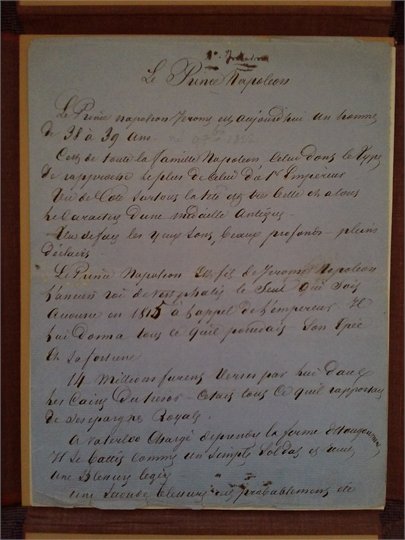 Le Prince Napoleon
Le Prince napoleon Jerome est aujourd'hui un homme
de 38 à 39 ans.
C'est de toute la famille Napoleon, Celui dont le Type
se rapproche le plus de Celui du 1er Empereur
Vu de Coté surtout la tête est très belle et a tous
les Caractères d'une médaille Antique -
Vu de face les yeux sont beaux profonds - pleins
d'éclairs
Le Prince Napoleon est fils de Jerome Napoleon
l'ancien roi de Westphalie le Seul qui soit
accouru en 1815 à l'appel de l'empereur Il
lui donna tous ce qu'il pouvait Son Epée
et Sa fortune
14 Millions furent Versés par lui dans
les Caisses du tresor - C'etait tous Ce qu'il rapportait
de ses epargnes Royales.
A Waterloo Chargé de prendre la ferme d'Hougoumont
Il Se battit Comme un Simple Soldat et reçut
une Blessure legère
une Seconde blessure est probablement de